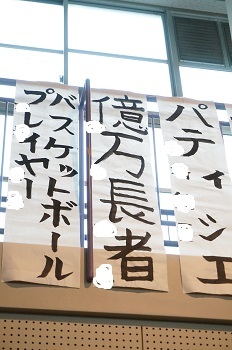 パティシエ
億万長者
バスケットボール
プレイヤー